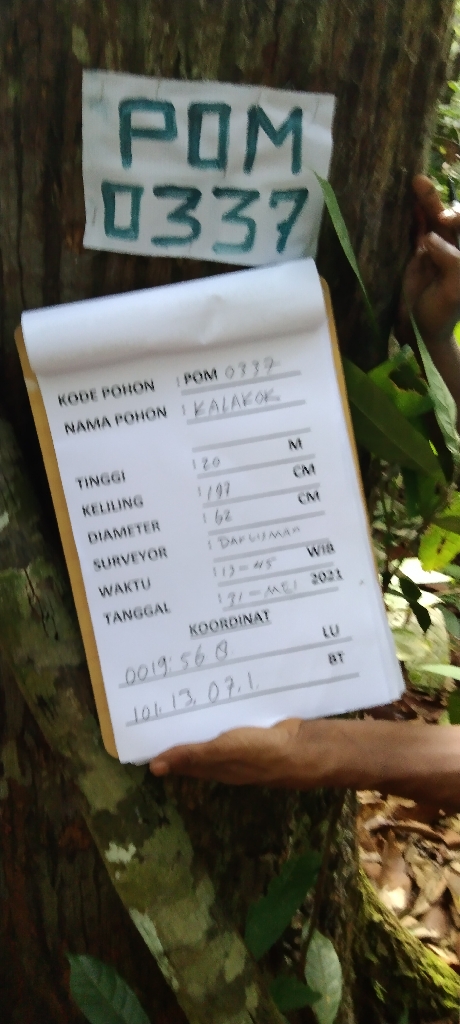 POM
0337
KODE POHON : POM 0337
NAMA POHON : KALAKOK
TINGGI : 20 M
KELILING : 197 CM
DIAMETER : 62 CM
SURVEYOR : DARUSMAN
WAKTU : 13-45 WIB
TANGGAL : 31-MEI 2021
KOORDINAT
0019: 56 8 LU
101. 13. 07.1. BT